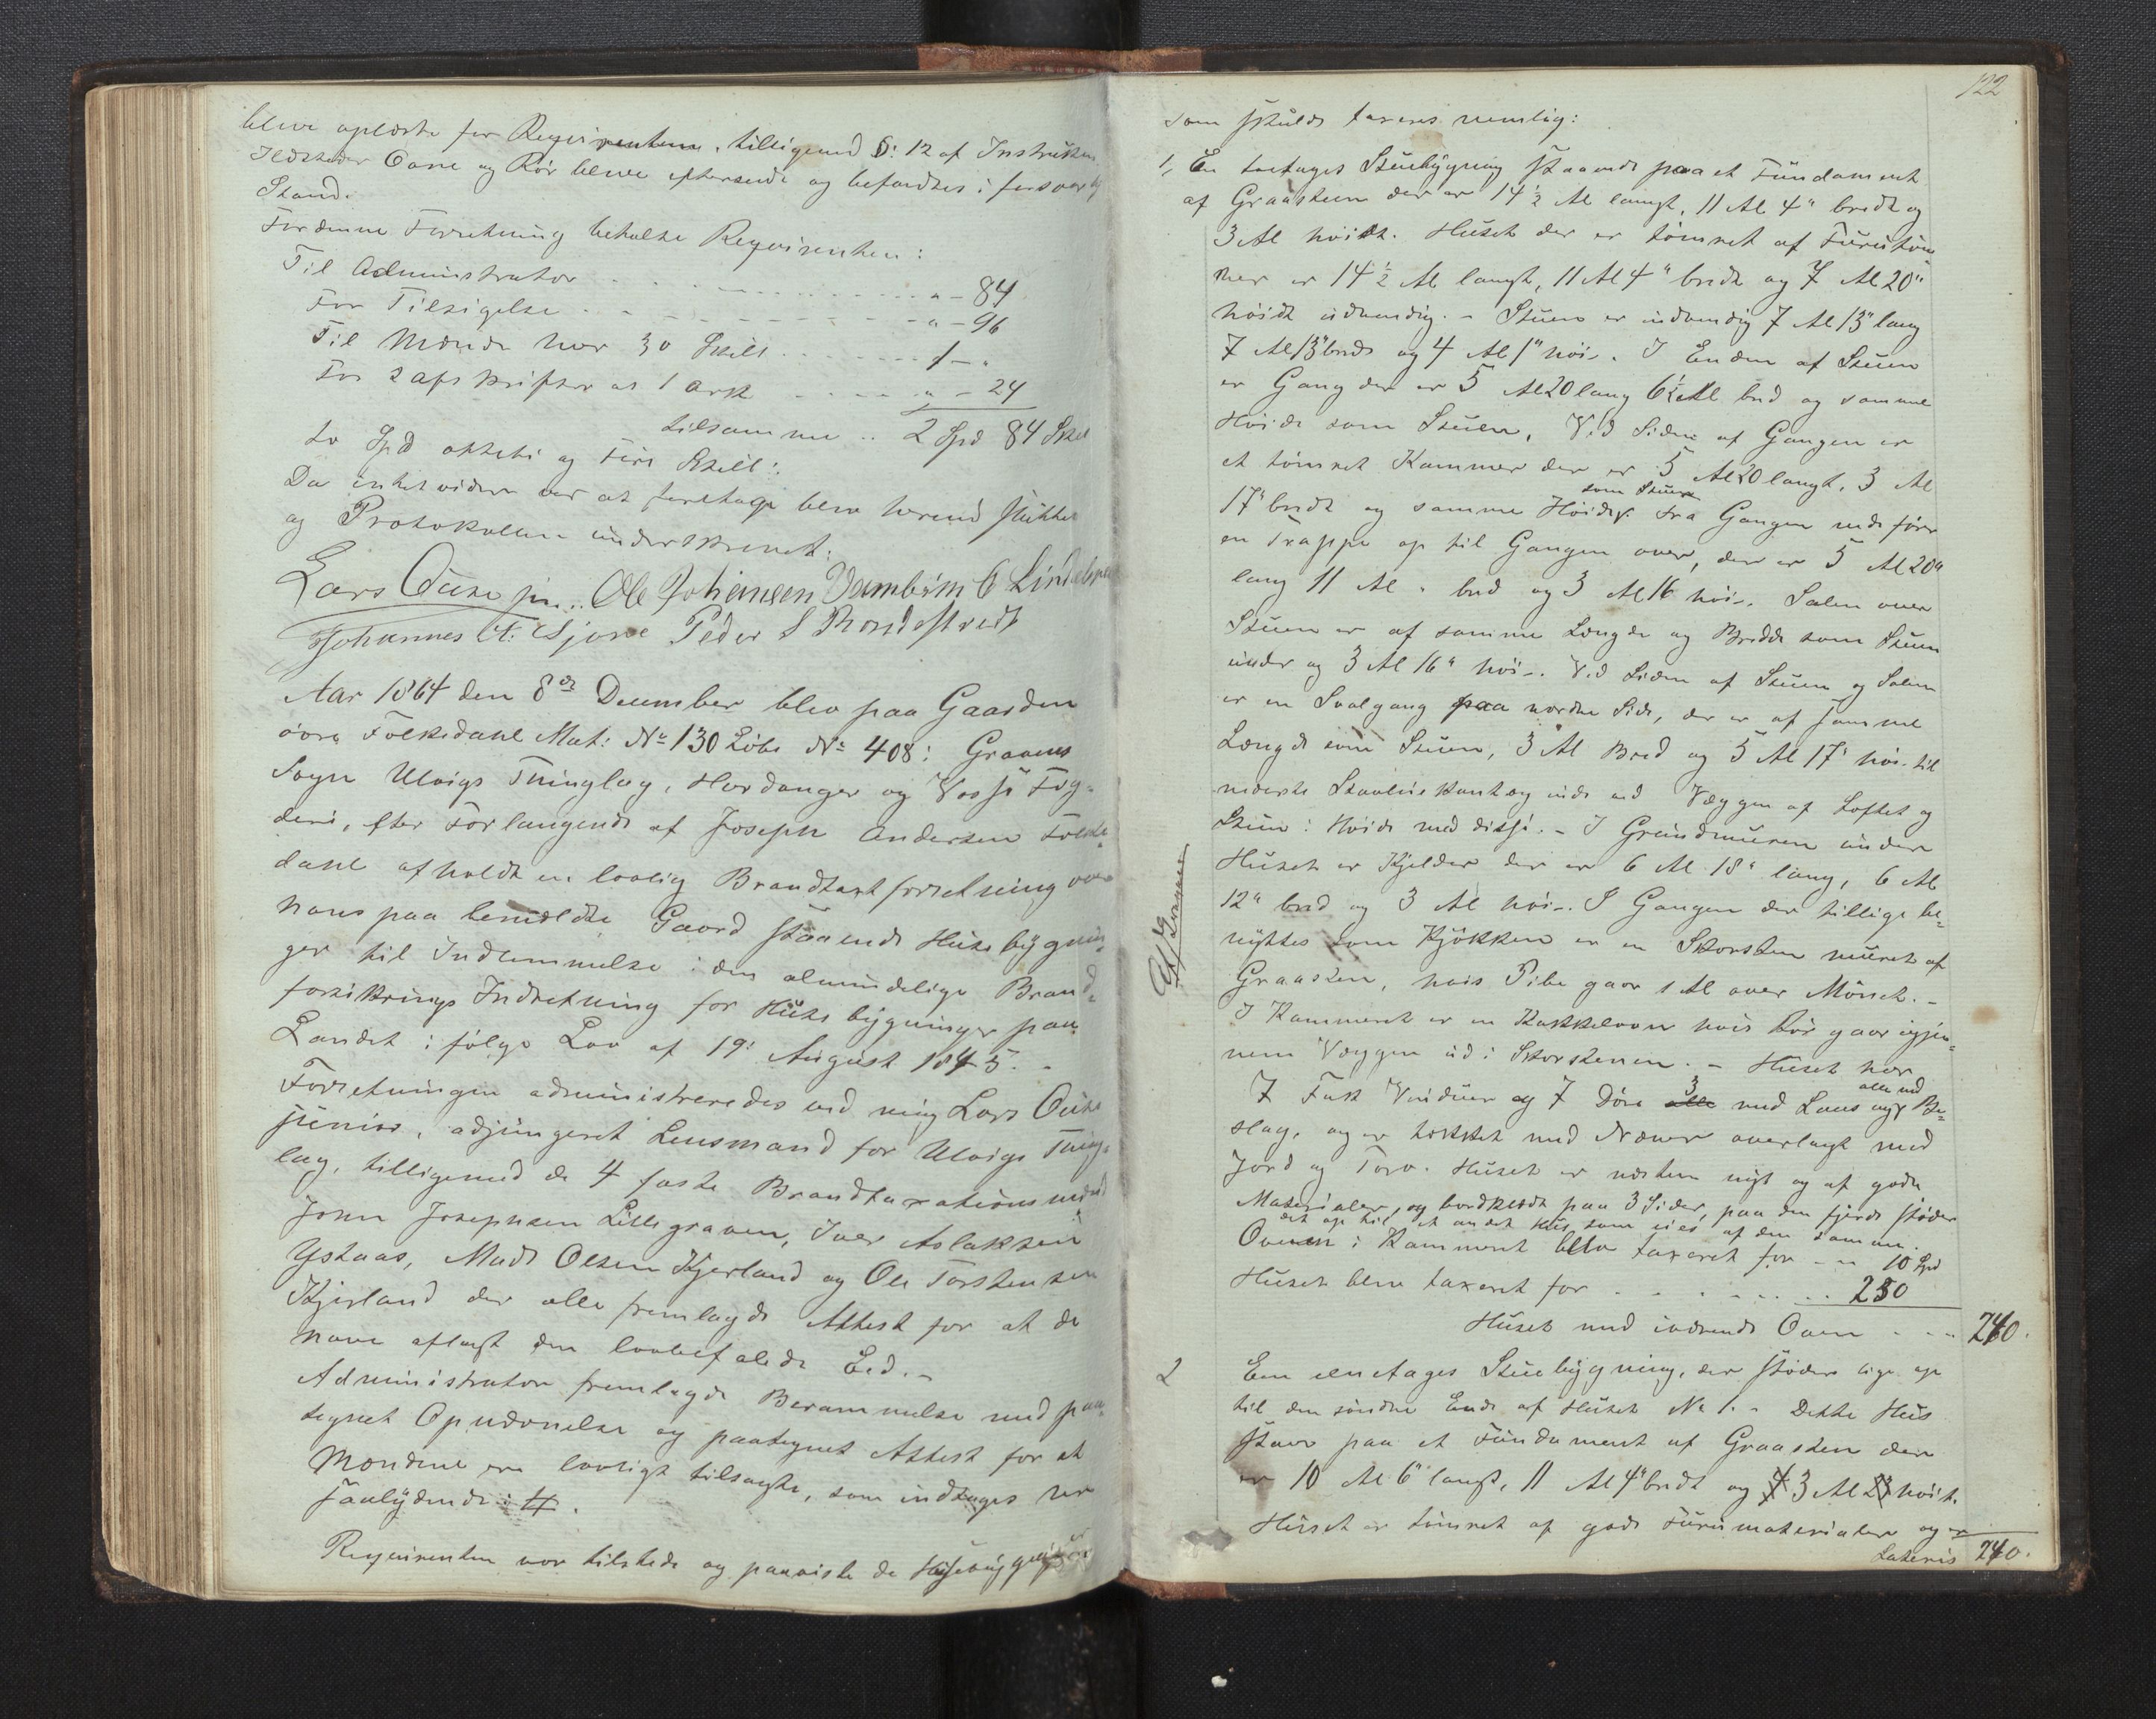 bleve oplæste for Reqvirenten, tilligemed §: 12 af Instruxen
Ildsteder Ovne og Rör bleve efterseede og befandtes i forsvarlig
Stand.
For denne Forretning betalte Reqvirenten:
Til Administrator . . . . . . " - 84
For Tilsigelse . . . . . . " - 96
Til Mænde hver 30 Skill . . . . . 1 - "
For 2 afskrifter at 1 Ark . . . . " - 24
tilsammen .. 2 Spd 84 Skil
to Spd otteti og Fire Skill:.
Da intet videre var at foretage blev hermed sluttet
og Protokollen underskrevet.
Lars Ouse jun. Ole Johansen
Johannes
Aar 1864 den 8de December blev paa Gaarden
övre Folkedahl Mat: No 130 Löbe No 408: Gravens
Sogn Ulvigs Thinglag, Hardanger og Voss's Fog-
deri, efter Forlangende af Joseph Andersen Folke-
dahl afholdt en lovlig Brandtaxtforretning over
hans paa bemældte Gaard staaende Huusbygnin-
ger til Indlemmelse i den almindelige Brand-
forsikrings Indretning for Huusbygninger paa
Landet i fölge Lov af 19: August 1845. -
Forretningen administreredes ved mig Lars Ouse
junior, adjungeret Lensmand for Ulvigs Thing-
lag, tilligemed de 4 faste Brandtaxationsmænd
John Josephsen Lillegraven, Iver Aslaksen
Ystaas, Mads Olsen Kjerland og Ole Torstensen
Kjerland der alle fremlagde Attest for at de
have aflagt den lovbefalede Eed. -
Administrator fremlagde Berammelse med paa-
tegnet Opnævnelse og paategnet Attest for at
Mændene ere lovligt tilsagte, som indtages her
saalydende: #.
Reqvirenten var tilstede og paaviste de Huusebygninger
122
som skulde taxeres nemlig:
1, En toetages Stuebygning staaende paa et Fundament
af Graasteen der er 14 1/2 Al langt, 11 Al 4" bredt og
3 Al höidt. Huset der er tömret af Furutöm
mer er 14 1/2 Al langt, 11 Al 4" bredt og 7 Al 20"
höidt udvendig. - Stuen er indvendig 7 Al 13" lang
7 Al 13" bred og 4 Al 1" höi. I Enden af Stuen
er Gang der er 5 Al 20 lang 6 1/2 Al bred og samme
Höide som Stuen, Ved Siden af Gangen er
et tömret Kammer der er 5 Al 20 langt, 3 Al
17" bredt og samme Höide som Stuen. Fra Gangen nede förer
en Trappe op til Gangen over, der er 5 Al 20"
lang 11 Al " bred og 3 Al 16 höi. Salen over
Stuen er af samme Længde og Bredde som Stuen
under og 3 Al 16" höi. Ved Siden af Stuen og Salen
er en Svalgang paa nordre Side, der er af samme
Længde som Stuen, 3 Al Bred og 5 Al 17" höi til
nederste og inde ved Væggen af Loftet og
Stuen i Höide med disse. - I Grundmuren under
Huset er Kjelder der er 6 Al 18" lang, 6 Al
12" bred og 3 Al höi. I Gangen der tillige be-
nyttes som Kjökken er en Skorsten muret af
Graasten, hvis Pibe gaar 1 Al over Mönet. -
I Kammeret er en Kakkelovn hvis Rör gaar igjen-
nem Væggen ud i Skorstenen. - Huset har
7 Fast Vinduer og 7 Döre 3 med Laas og alle med Be-
slag, og er tækket med Næver overlagt med
Jord og Torv. Huset er næsten nyt og af gode
Materialer, og bordklædt paa 3 Sider, paa den fjerde stöder
det op til et andet Hus som eies af den samme.
Ovnen i Kammeret blev taxeret for - " 10 Spd
Huset blev taxeret for . . . . . . 230
Huset med iværende Ovn . . . 240.
Graven
2 Een eenetages Stuebygning, der stöder lige op
til den söndre Ende af Huset No 1. - Dette Hus
staar paa et Fundament af Graasten der
er 10 Al 6" langt, 11 Al 4" bredt og 3 Al höit.
Huset er tömret af gode Furumaterialer og er
Lateris 240.